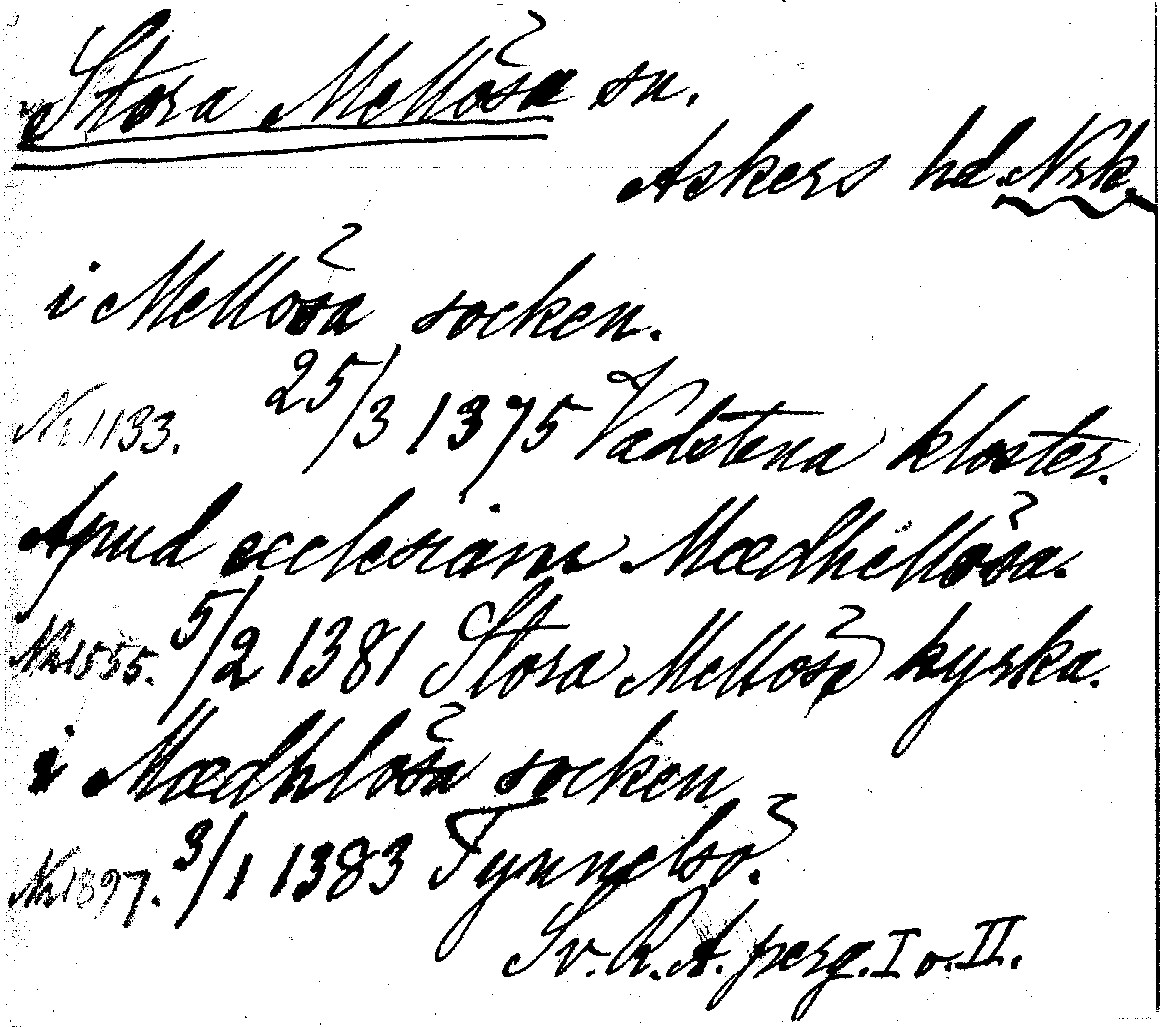 Stora Mellösa sn.
Askers hd. Nrk.
i Mellösa socken.
Nr 1133. 25/3 1375 Vadstena kloster.
Apud ecclesiam Mædhellösa.
Nr 1555. 5/2 1381 Stora Mellösa kyrka.
i Mædhlösa socken
Nr 1897. 3/1 1383 Tynnelsö.
Sv. R. A. perg. I o. II.